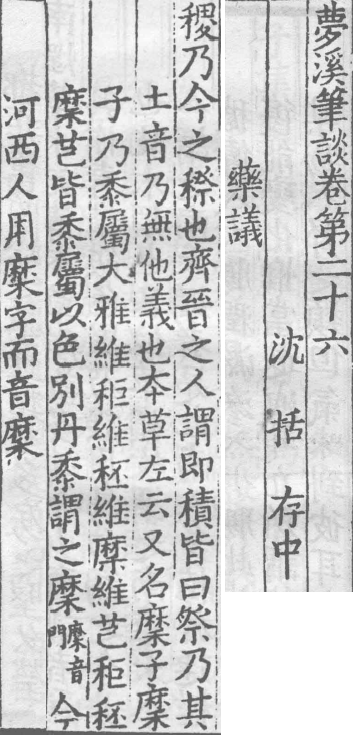 夢溪筆談卷第二十六
沈括存中
藥議
稷乃今之穄也齊晉之人謂即積皆曰祭乃其
土音乃無他義也夲草左云又名糜子糜
子乃黍屬大雅維秬維秠維糜維芑秬秠
糜芑皆黍屬以色別丹黍謂之糜糜音門今
河西人用糜字而音糜